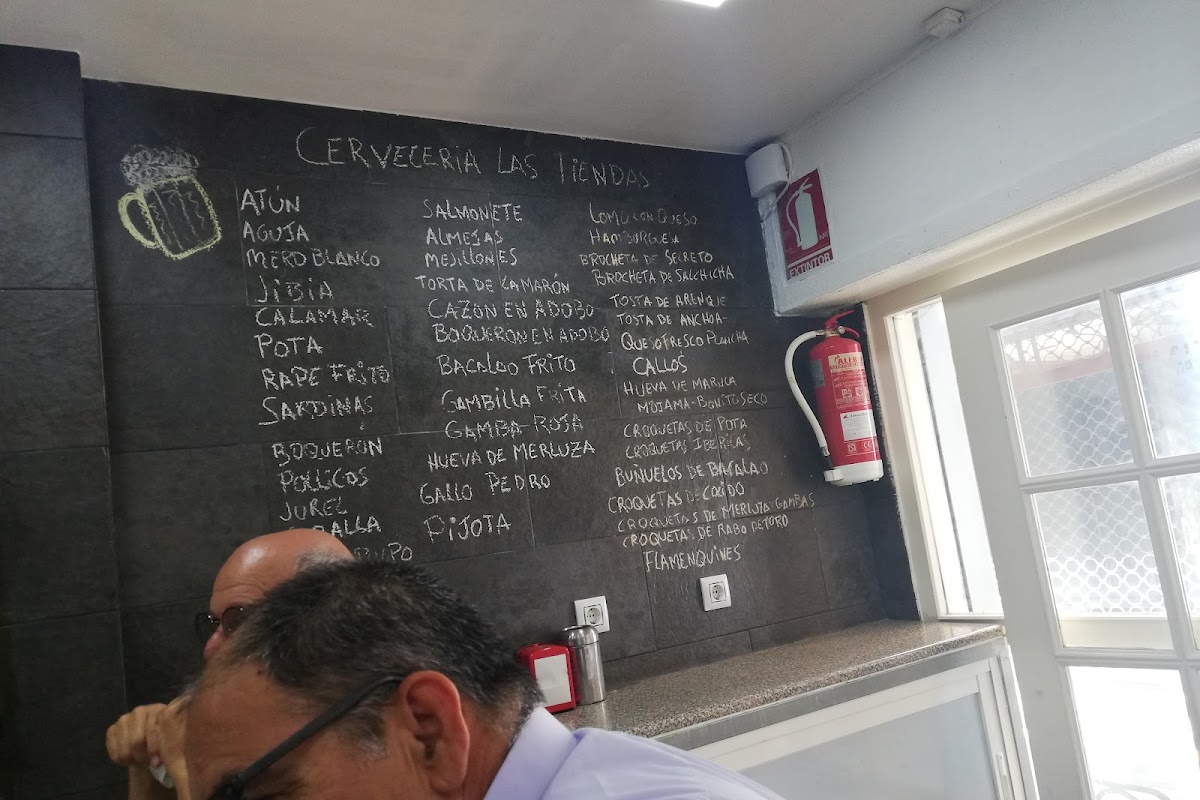 CERVECERIA LAS TIENDAS
ATÚN
AGUJA
MERO BLANCO
JIBIA
CALAMAR
POTA
RAPE FRITO
SARDINAS
BOQUERON
POLLICOS
JUREL
SALMONETE
ALMEJAS
MEJILLONES
TORTA DE CAMARÓN
CAZON EN ADOBO
BOQUERON EN ADOBO
BACALAO FRITO
GAMBILLA FRITA
GAMBA-ROJA
HUEVA DE MERLUZA
GALLO PEDRO
PIJOTA
LOMO CON QUESO
HAMBURGUESA
BROCHETA DE SECRETO
BROCHETA DE SALCHICHA
TOSTA DE ARENQUE
TOSTA DE ANCHOA-
QUESO FRESCO PLANCHA
CALLOS
HUEVA DE MARUCA
MOJAMA-BONITO SECO
CROQUETAS DE POTA
CROQUETAS IBERICAS
BUÑUELOS DE BACALAO
CROQUETAS DE COCIDO
CROQUETAS DE MERLUZA Y GAMBAS
CROQUETAS DE RABO DE TORO
FLAMENQUINES
EXTINTOR